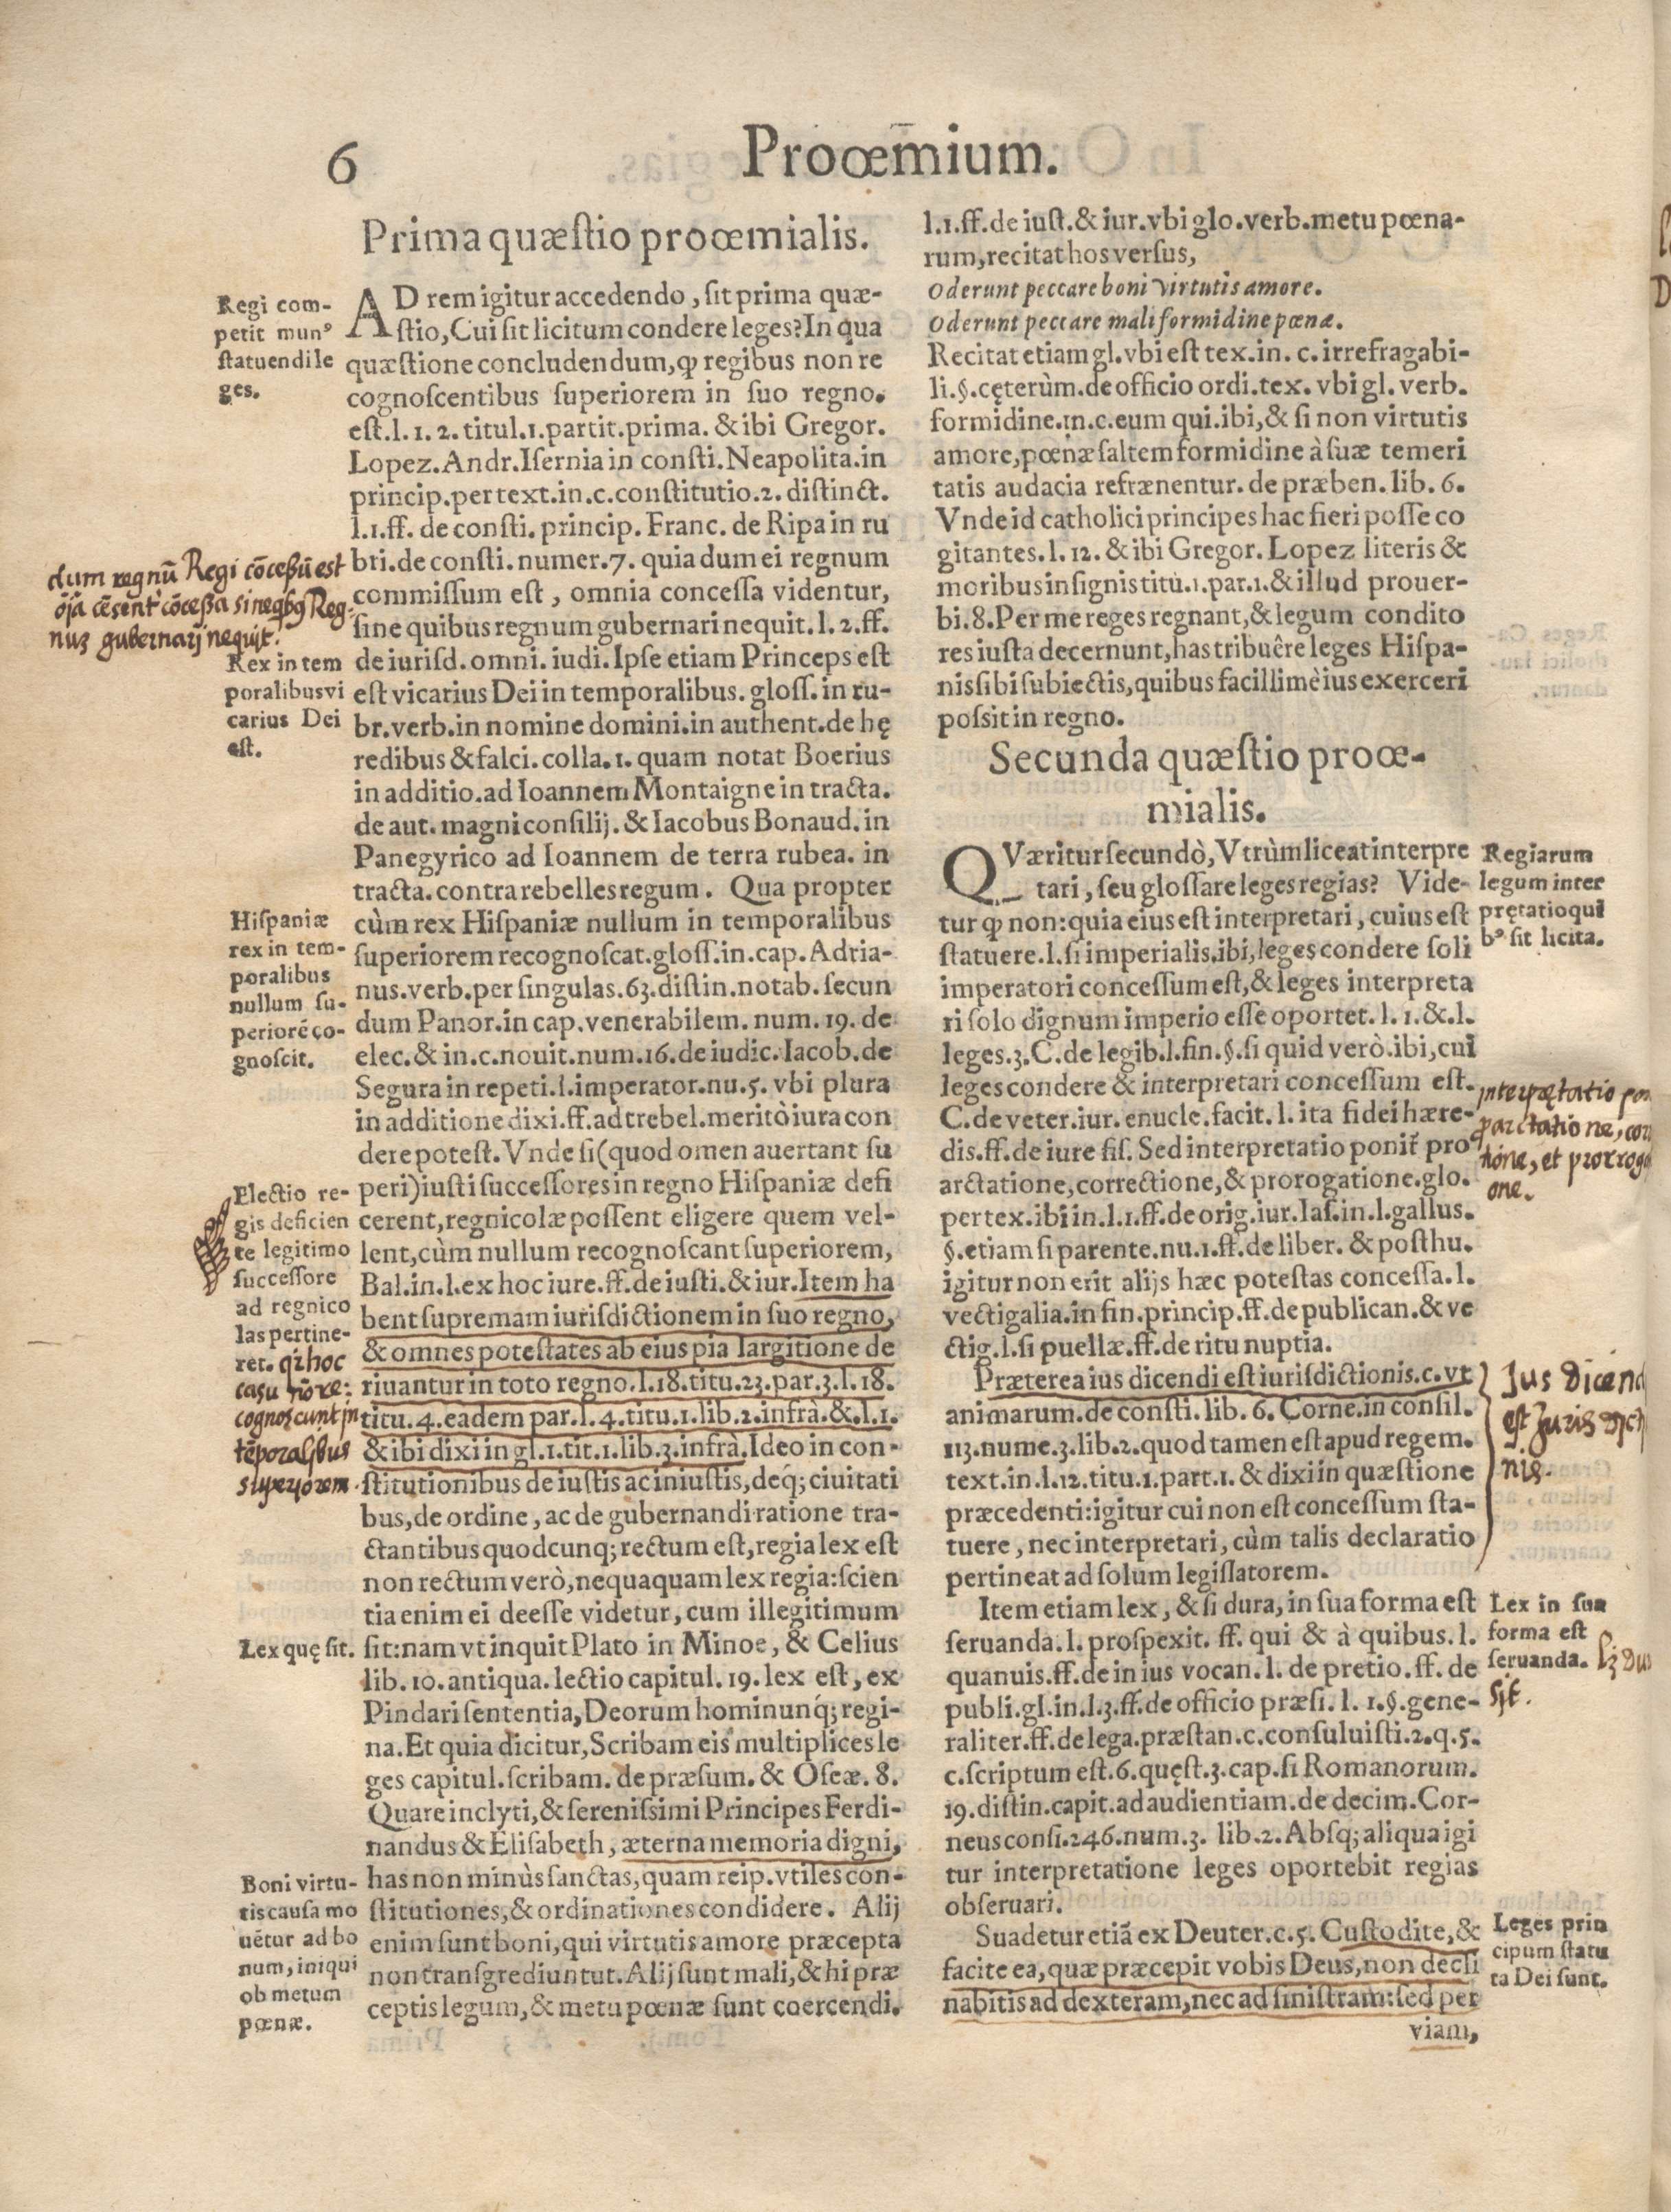 6
Proœmium.
Prima quæſtio proœmialis.
AD rem igitur accedendo, ſit prima quæ-
ſtio, Cui ſit licitum condere leges? In qua
quæſtione concludendum, ꝙ regibus non re
cognoſcentibus ſuperiorem in ſuo regno.
eſt. l. 1. 2. titul. 1. partit. prima. & ibi Gregor.
Lopez. Andr. Iſernia in conſti. Neapolita. in
princip. per text. in. c. conſtitutio. 2. diſtinct.
l. 1. ff. de conſti. princip. Franc. de Ripa in ru
bri. de conſti. numer. 7. quia dum ei regnum
commiſſum eſt, omnia conceſſa videntur,
ſine quibus regnum gubernari nequit. l. 2. ff.
de iuriſd. omni. iudi. Ipſe etiam Princeps eſt
eſt vicarius Dei in temporalibus. gloſſ. in ru-
br. verb. in nomine domini. in authent. de hę
redibus & falci. colla. 1. quam notat Boerius
in additio. ad Ioannem Montaigne in tracta.
de aut. magni conſilij. & Iacobus Bonaud. in
Panegyrico ad Ioannem de terra rubea. in
tracta. contra rebelles regum. Qua propter
cùm rex Hiſpaniæ nullum in temporalibus
ſuperiorem recognoſcat. gloſſ. in. cap. Adria-
nus. verb. per ſingulas. 63. diſtin. notab. ſecun
dum Panor. in cap. venerabilem. num. 19. de
elec. & in. c. nouit. num. 16. de iudic. Iacob. de
Segura in repeti. l. imperator. nu. 5. vbi plura
in additione dixi. ff. ad trebel. meritò iura con
dere poteſt. Vnde ſi (quod omen auertant ſu
peri) iuſti ſucceſſores in regno Hiſpaniæ defi
cerent, regnicolæ poſſent eligere quem vel-
lent, cùm nullum recognoſcant ſuperiorem,
Bal. in. l. ex hoc iure. ff. de iuſti. & iur. Item ha
bent ſupremam iuriſdictionem in ſuo regno,
& omnes poteſtates ab eius pia largitione de
riuantur in toto regno. l. 18. titu. 23. par. 3. l. 18.
titu. 4. eadem par. l. 4. titu. 1. lib. 2. infrà. &. l. 1.
& ibi dixi in gl. 1. tit. 1. lib. 3. infrà. Ideo in con-
ſtitutionibus de iuſtis ac iniuſtis, deq́; ciuitati
bus, de ordine, ac de gubernandi ratione tra-
ctantibus quodcunq; rectum eſt, regia lex eſt
non rectum verò, nequaquam lex regia: ſcien
tia enim ei deeſſe videtur, cum illegitimum
ſit: nam vt inquit Plato in Minoe, & Celius
lib. 10. antiqua. lectio capitul. 19. lex eſt, ex
Pindari ſententia, Deorum hominunq́; regi-
na. Et quia dicitur, Scribam eis multiplices le
ges capitul. ſcribam. de præſum. & Oſeæ. 8.
Quare inclyti, & ſereniſsimi Principes Ferdi-
nandus & Eliſabeth, æterna memoria digni,
has non minùs ſanctas, quam reip. vtiles con-
ſtitutiones, & ordinationes condidere. Alij
enim ſunt boni, qui virtutis amore præcepta
non tranſgrediuntut. Alij ſunt mali, & hi præ
ceptis legum, & metu pœnæ ſunt coercendi.
Regi com-
petit mun⁹
ſtatuendi le
ges.
dum regnū Regi cōceßū est
oīa cēsent' cōceßa sine qbq Reg-
nuz gubernarj nequit.
Rex in tem
poralibus vi
carius Dei
eſt.
Hiſpaniæ
rex in tem-
poralibus
nullum ſu-
periorē co-
gnoſcit.
Electio re-
gis deficien
te legitimo
ſucceſſore
ad regnico
las pertine-
ret. qꝛ hoc
casu nō re:
cognoscunt jn
tēporalibus
superiorem.
Lex quę ſit.
Boni virtu-
tis cauſa mo
uētur ad bo
num, iniqui
ob metum
pœnæ.
l. 1. ff. de iuſt. & iur. vbi glo. verb. metu pœna-
rum, recitat hos verſus,
Oderunt peccare boni virtutis amore.
Oderunt peccare mali formidine pœnæ.
Recitat etiam gl. vbi eſt tex. in. c. irrefragabi-
li. §. cęterùm. de officio ordi. tex. vbi gl. verb.
formidine. in. c. eum qui. ibi, & ſi non virtutis
amore, pœnæ ſaltem formidine à ſuæ temeri
tatis audacia refrænentur. de præben. lib. 6.
Vnde id catholici principes hac fieri poſſe co
gitantes. l. 12. & ibi Gregor. Lopez literis &
moribus inſignis titu. 1. par. 1. & illud prouer-
bi. 8. Per me reges regnant, & legum condito
res iuſta decernunt, has tribuêre leges Hiſpa-
nis ſibi ſubiectis, quibus facillimè ius exerceri
poſsit in regno.
Secunda quæſtio proœ-
mialis.
QVæritur ſecundò, Vtrùm liceat interpre
tari, ſeu gloſſare leges regias? Vide-
tur ꝙ non: quia eius eſt interpretari, cuius eſt
ſtatuere. l. ſi imperialis. ibi, leges condere ſoli
imperatori conceſſum eſt, & leges interpreta
ri ſolo dignum imperio eſſe oportet. l. 1. &. l.
leges. 3. C. de legib. l. fin. §. ſi quid verò. ibi, cui
leges condere & interpretari conceſſum eſt.
C. de veter. iur. enucle. facit. l. ita fidei hære-
dis. ff. de iure fiſ. Sed interpretatio ponit̃ pro
arctatione, correctione, & prorogatione. glo.
per tex. ibi in. l. 1. ff. de orig. iur. Iaſ. in. l. gallus.
§. etiam ſi parente. nu. 1. ff. de liber. & poſthu.
igitur non erit alijs hæc poteſtas conceſſa. l.
vectigalia. in fin. princip. ff. de publican. & ve
ctig. l. ſi puellæ. ff. de ritu nuptia.
Præterea ius dicendi eſt iuriſdictionis. c. vt
animarum. de conſti. lib. 6. Corne. in conſil.
113. nume. 3. lib. 2. quod tamen eſt apud regem.
text. in. l. 12. titu. 1. part. 1. & dixi in quæſtione
præcedenti: igitur cui non eſt conceſſum ſta-
tuere, nec interpretari, cùm talis declaratio
pertineat ad ſolum legiſlatorem.
Item etiam lex, & ſi dura, in ſua forma eſt
ſeruanda. l. proſpexit. ff. qui & à quibus. l.
quanuis. ff. de in ius vocan. l. de pretio. ff. de
publi. gl. in. l. 3. ff. de officio præſi. l. 1. §. gene-
raliter. ff. de lega. præſtan. c. conſuluiſti. 2. q. 5.
c. ſcriptum eſt. 6. quęſt. 3. cap. ſi Romanorum.
19. diſtin. capit. ad audientiam. de decim. Cor-
neus conſi. 246. num. 3. lib. 2. Abſq; aliqua igi
tur interpretatione leges oportebit regias
obſeruari.
Suadetur etiã ex Deuter. c. 5. Cuſtodite, &
facite ea, quæ præcepit vobis Deus, non decli
nabitis ad dexteram, nec ad ſiniſtram: ſed per
viam,
Regiarum
legum inter
pretatio qui
b⁹ ſit licita.
interpretatio pon
parctatione, cor
tione, et prorogo
one.
Jus Dicend
est Juris dict
nis.
Lex in ſua
forma eſt
ſeruanda. lꝫ du
sit.
Leges prin
cipum ſtatu
ta Dei ſunt.